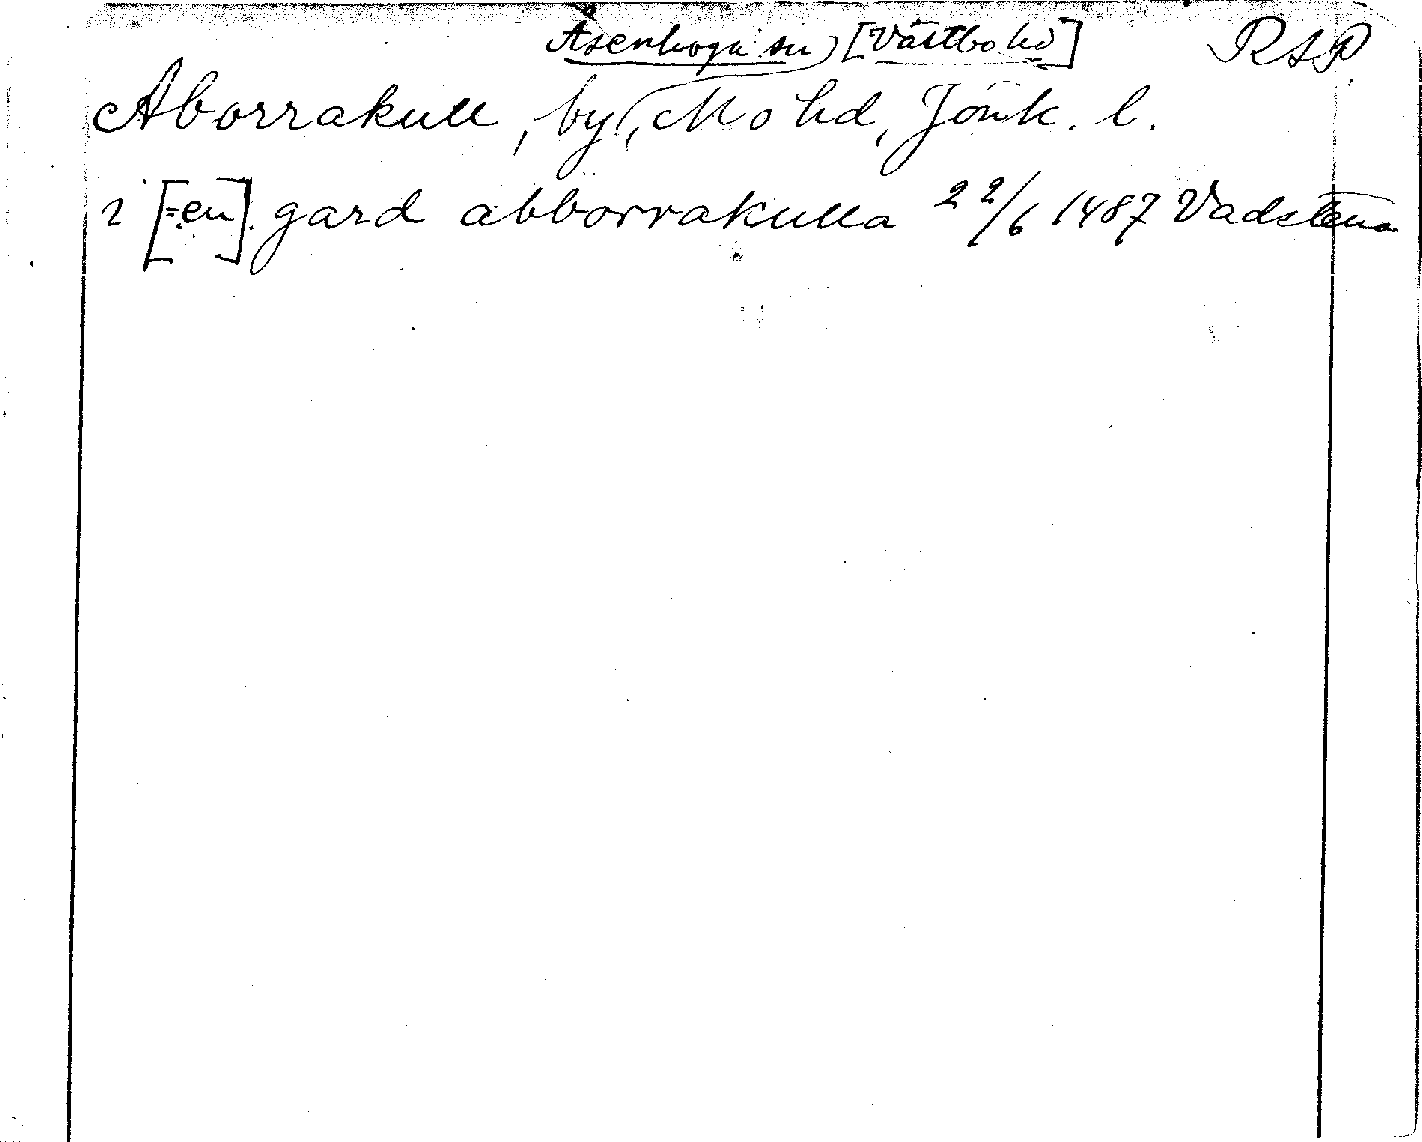 Åsenhöga sn [Västbo hd] RAP
Aborrakull, by, Mo hd, Jönk. l.
i [=en] gard abborrakulla 22/6 1487 Vadstena